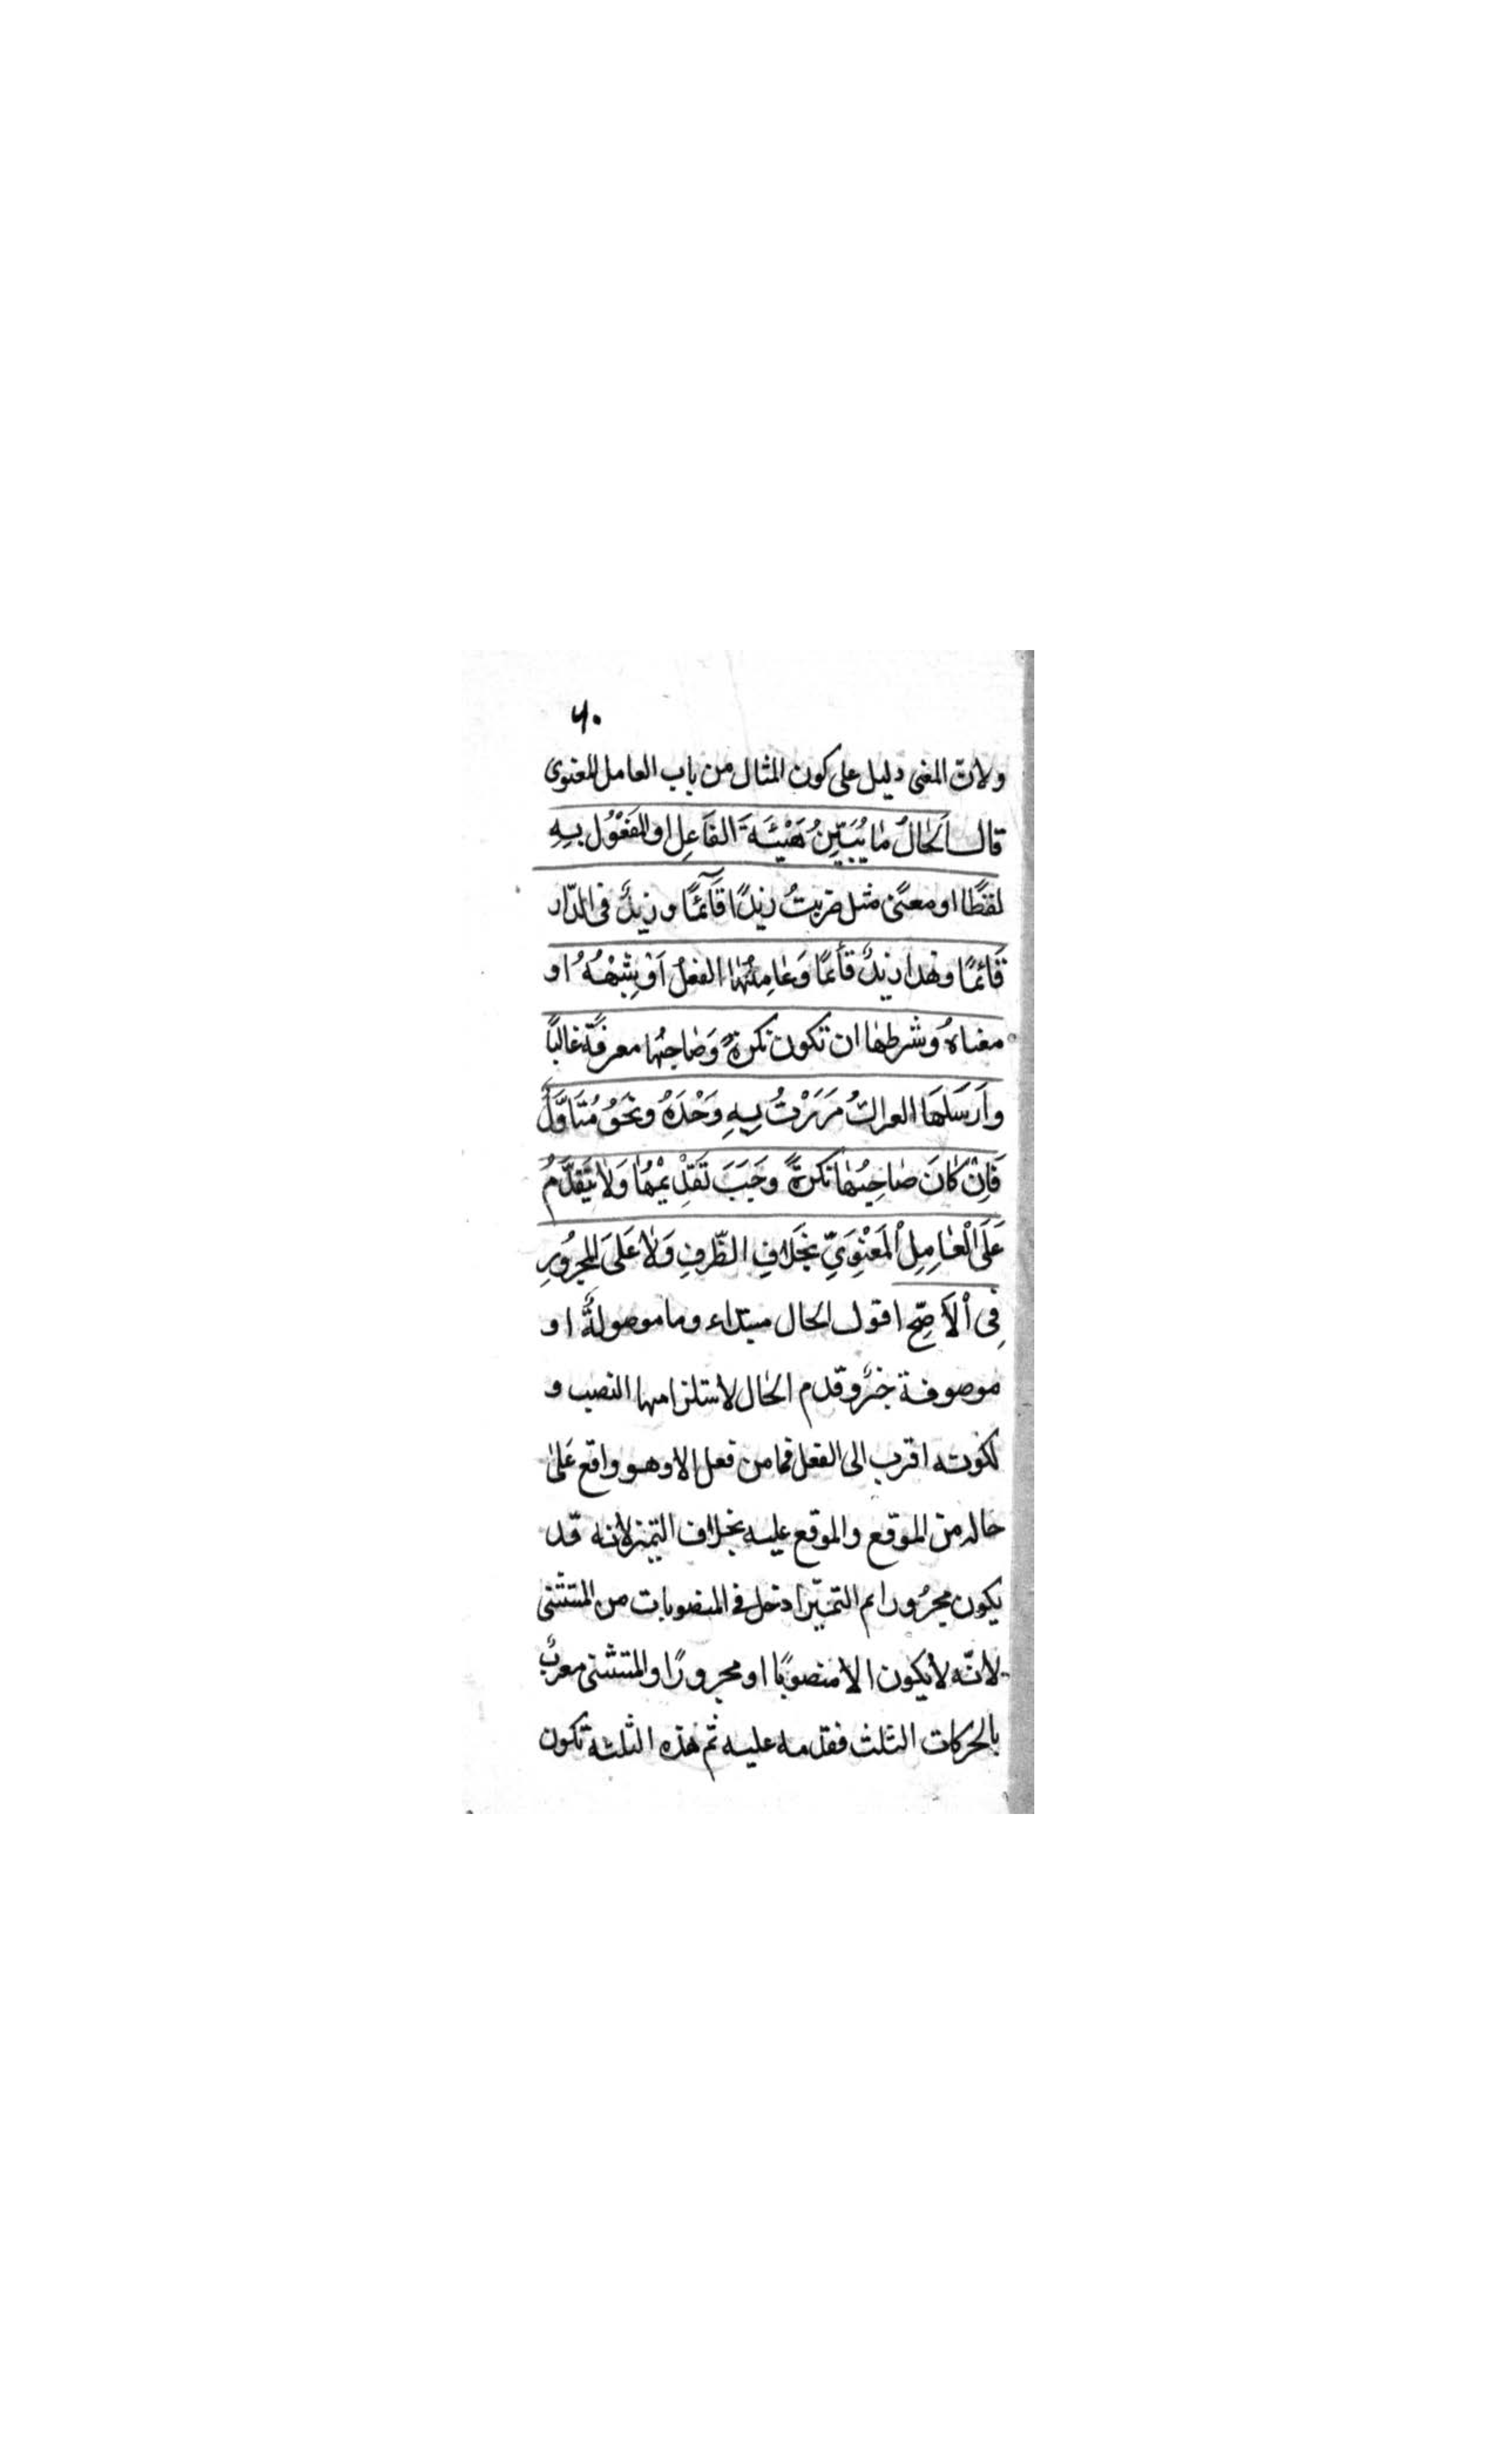 ٦٠
ولان المعنى دليل على كون المثال من باب العامل المعنوى
قال اَلحالُ مٰا يُبَيِّنُ هَيْئَةَ الفَاعِلِ او المَفْعُول بِهِ
لفظًا او معنًى مثل ضربتُ زيدًا قَآئمًا و زيدٌ فى الدّار
قَائمًا وهذا زيدٌ قائمًا وَعٰامِلُهٰا الفعلُ اَوْ شِبْهُهُ او
معناهُ وَشرطهٰا ان تكون نكرةً وَصٰاحِبُهٰا معرفةً غالبًا
واَرْسَلَهَا العراكَ مَرَرْتُ بِهِ وَحْدَهُ ونَحْوُ مُتَاَوَّلٌ
فَاِنْ كٰانَ صٰاحِبُهٰا نكرةً وَجَبَ تَقْدِيْمُهٰا وَلٰا يَتَقَدَّمُ
عَلَى الْعٰامِلِ الْمَعْنَوِيِّ بخَلافِ الظّرفِ وَلٰا عَلَى المجرُورِ
فِى اْلاَصَحِّ اقول الحال مبتداء وما موصولةٌ او
موصوفة خبرٌ وقدم الحٰال لاستلزامها النصب و
لكونه اقرب الى الفعل فما من فعل الا وهو واقع عَلىٰ
حاله من الموقع والموقع عليه بخلاف التميز لانه قد
يكون مجرُورا ثم التميّز ادخل فى المنصوبات من المستثنى
لانّه لا يكون الا منصوبًا او مجرورًا والمستثنى معربٌ
بالحركات الثلث فقدمه عليه ثم هٰذه الثلثة تكون